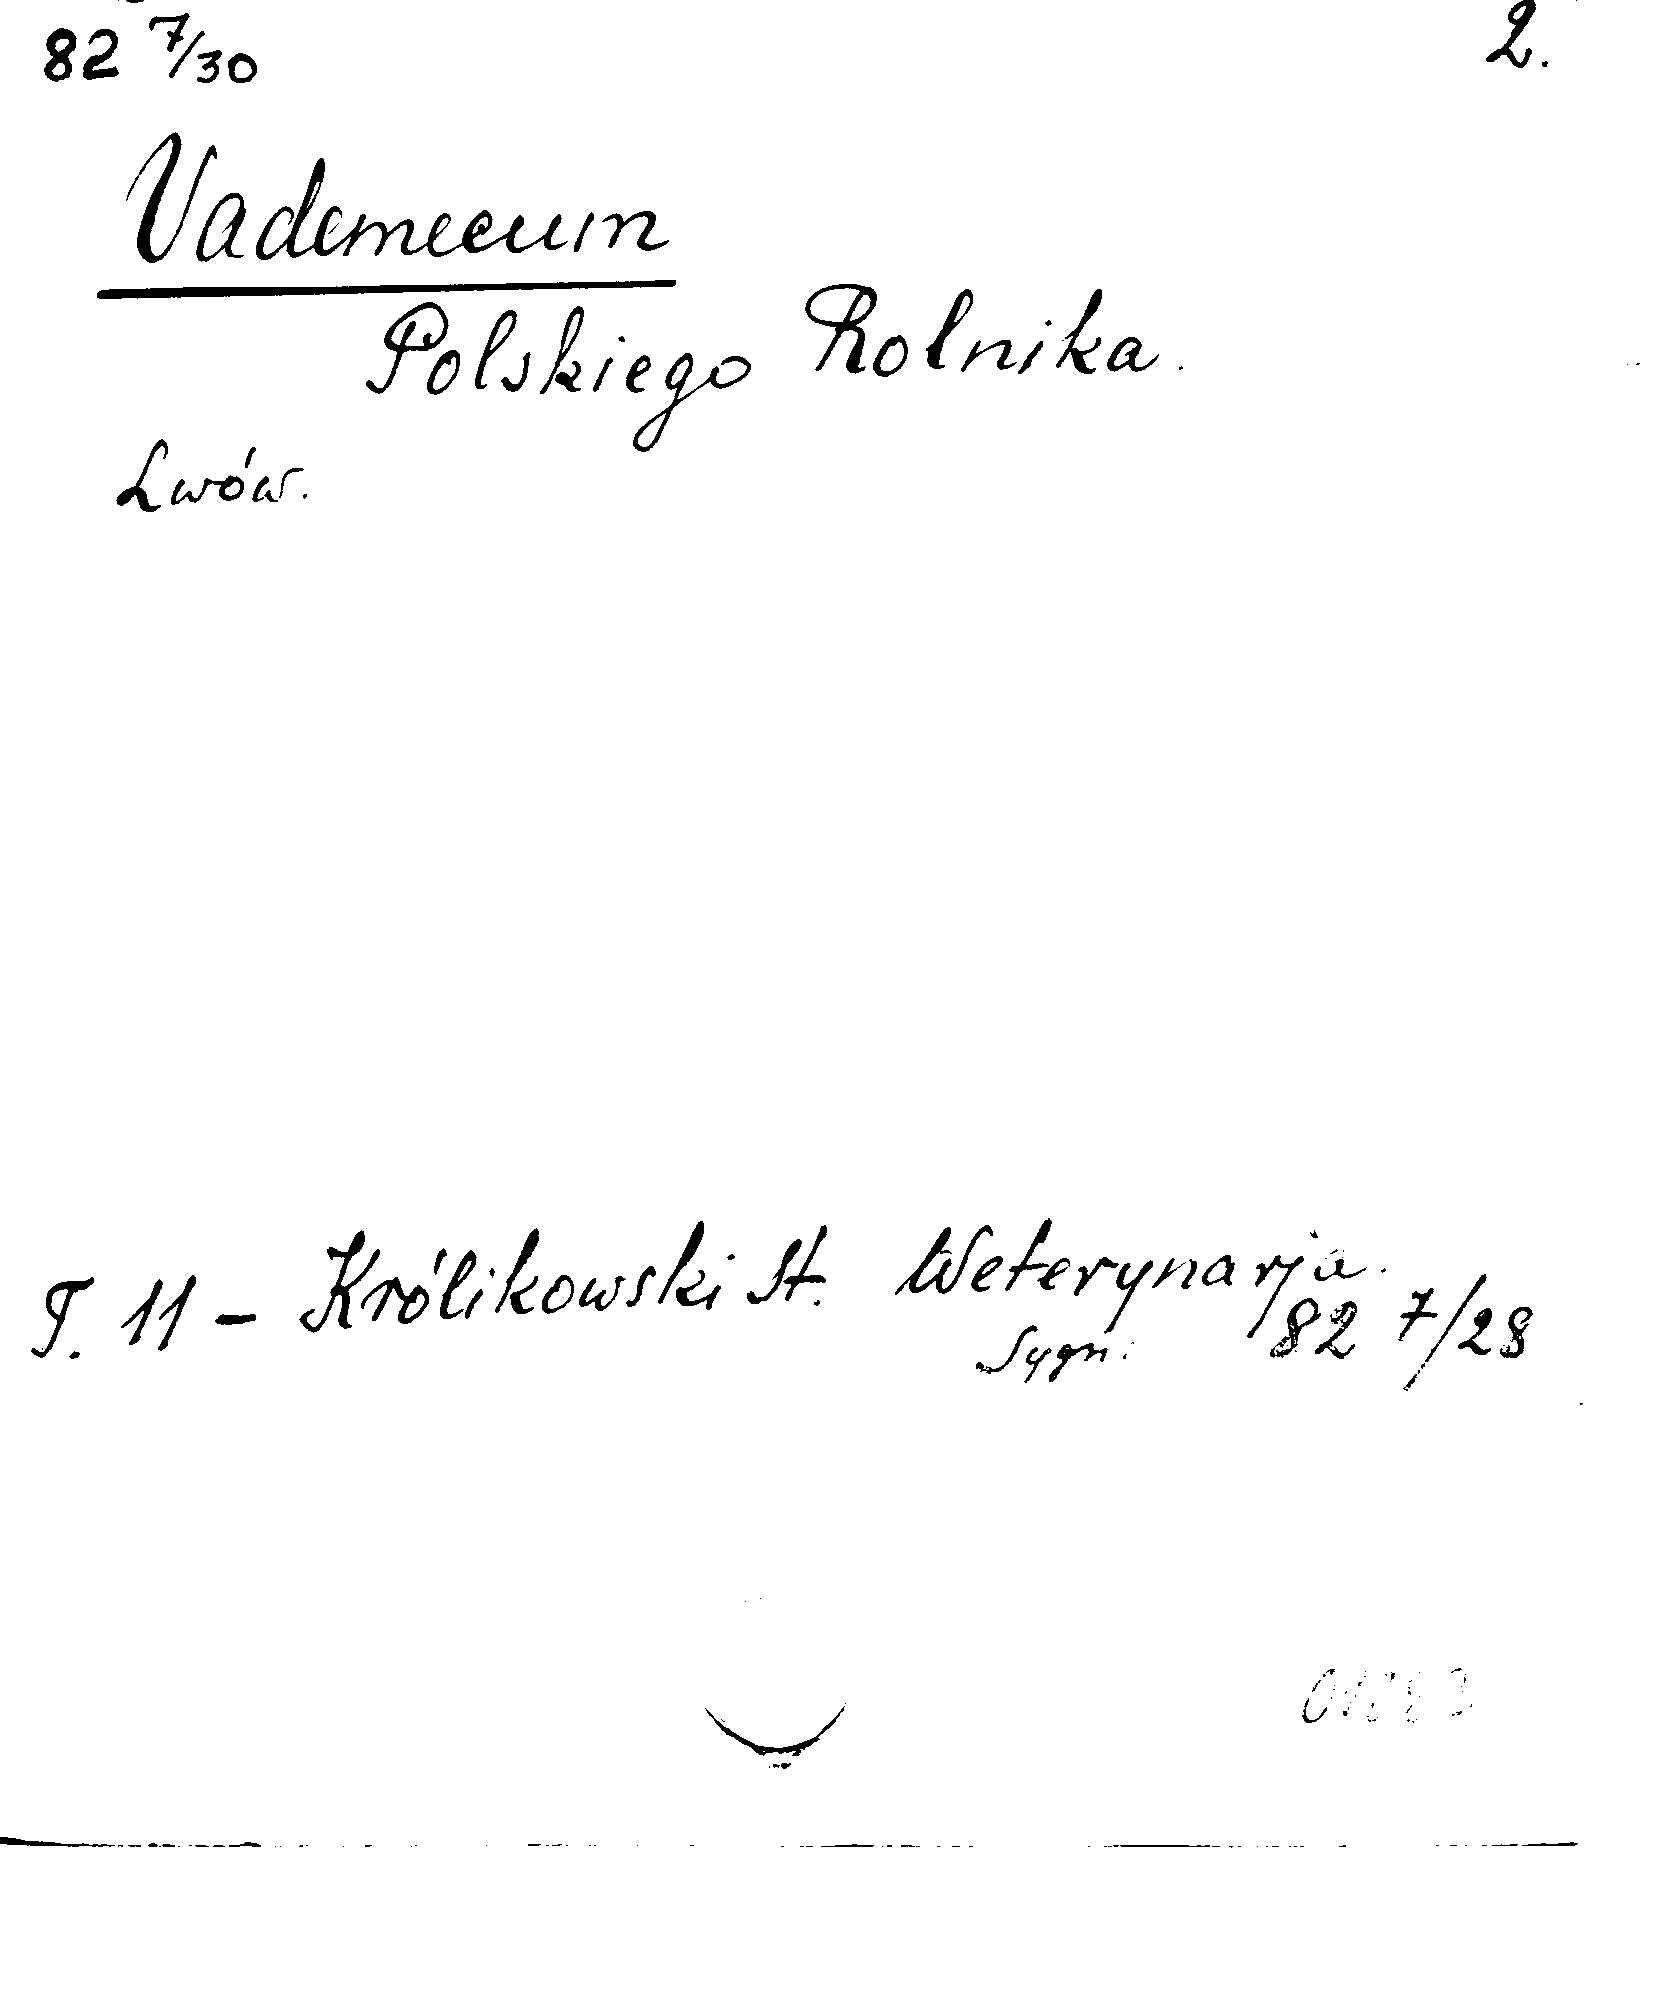 82 7/30 2.
Vademecum
Polskiego Rolnika.
Lwów.
T. 11 - Królikowski St. Weterynarja.
Sygn: 82 7/28